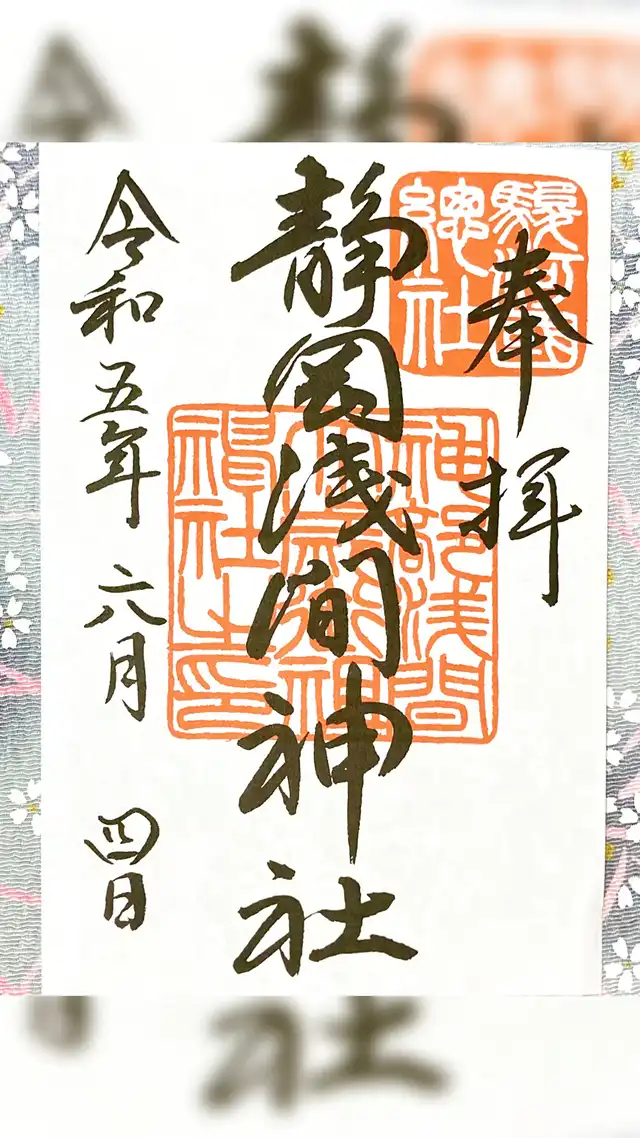 奉拝
駿河國
總社
静岡浅間神社
神部浅間
大歳御祖
神社之印
令和五年六月四日